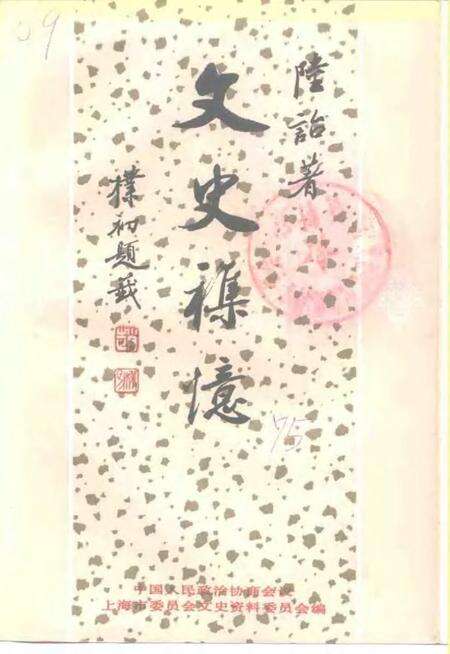 09
陸詒著
文史襍憶
樸初題籤
75
中国人民政治协商会议
上海市委员会文史资料委员会编